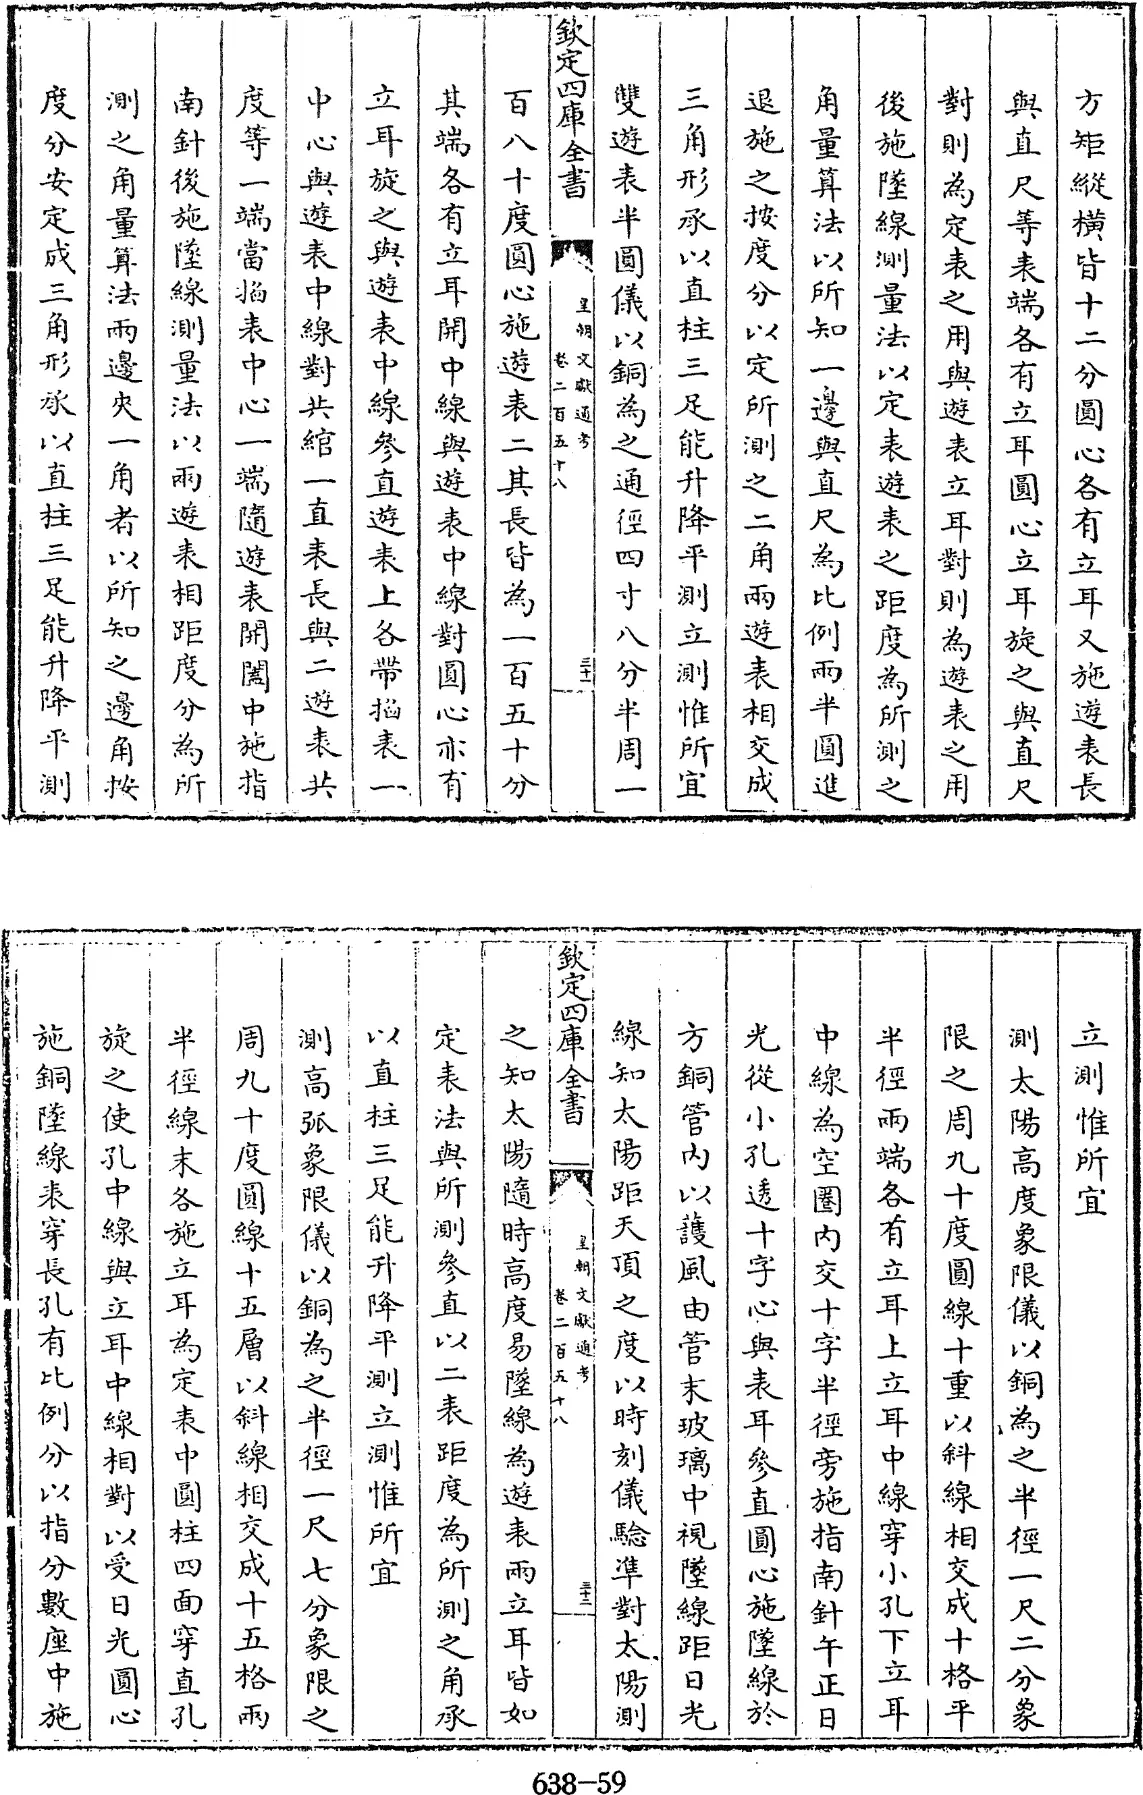 方矩縱横皆十二分圓心各有立耳又施遊表長
與直尺等表端各有立耳圓心立耳旋之與直尺
對則為定表之用與遊表立耳對則為遊表之用
後施墜線測量法以定表遊表之距度為所測之
角量算法以所知一邊與直尺為比例兩半圓進
退施之按度分以定所測之二角兩遊表相交成
三角形承以直柱三足能升降平測立測惟所宜
雙遊表半圓儀以銅為之通徑四寸八分半周一
欽定四庫全書
皇朝文獻通考
卷二百五十八
三十一
百八十度圓心施遊表二其長皆為一百五十分
其端各有立耳開中線與遊表中線對圓心亦有
立耳旋之與遊表中線參直遊表上各帶搯表一
中心與遊表中線對共綰一直表長與二遊表共
度等一端當搯表中心一端隨遊表開闔中施指
南針後施墜線測量法以兩遊表相距度分為所
測之角量算法兩邊夾一角者以所知之邊角按
度分安定成三角形承以直柱三足能升降平測
立測惟所宜
測太陽高度象限儀以銅為之半徑一尺二分象
限之周九十度圓線十重以斜線相交成十格平
半徑兩端各有立耳上立耳中線穿小孔下立耳
中線為空圈内交十字半徑旁施指南針午正日
光從小孔透十字心與表耳參直圓心施墜線於
方銅管内以護風由管末玻璃中視墜線距日光
線知太陽距天頂之度以時刻儀驗準對太陽測
欽定四庫全書
皇朝文獻通考
卷二百五十八
三十二
之知太陽隨時高度易墜線為遊表兩立耳皆如
定表法與所測參直以二表距度為所測之角承
以直柱三足能升降平測立測惟所宜
測高弧象限儀以銅為之半徑一尺七分象限之
周九十度圓線十五層以斜線相交成十五格兩
半徑線末各施立耳為定表中圓柱四面穿直孔
旋之使孔中線與立耳中線相對以受日光圓心
施銅墜線表穿長孔有比例分以指分數座中施
638-59